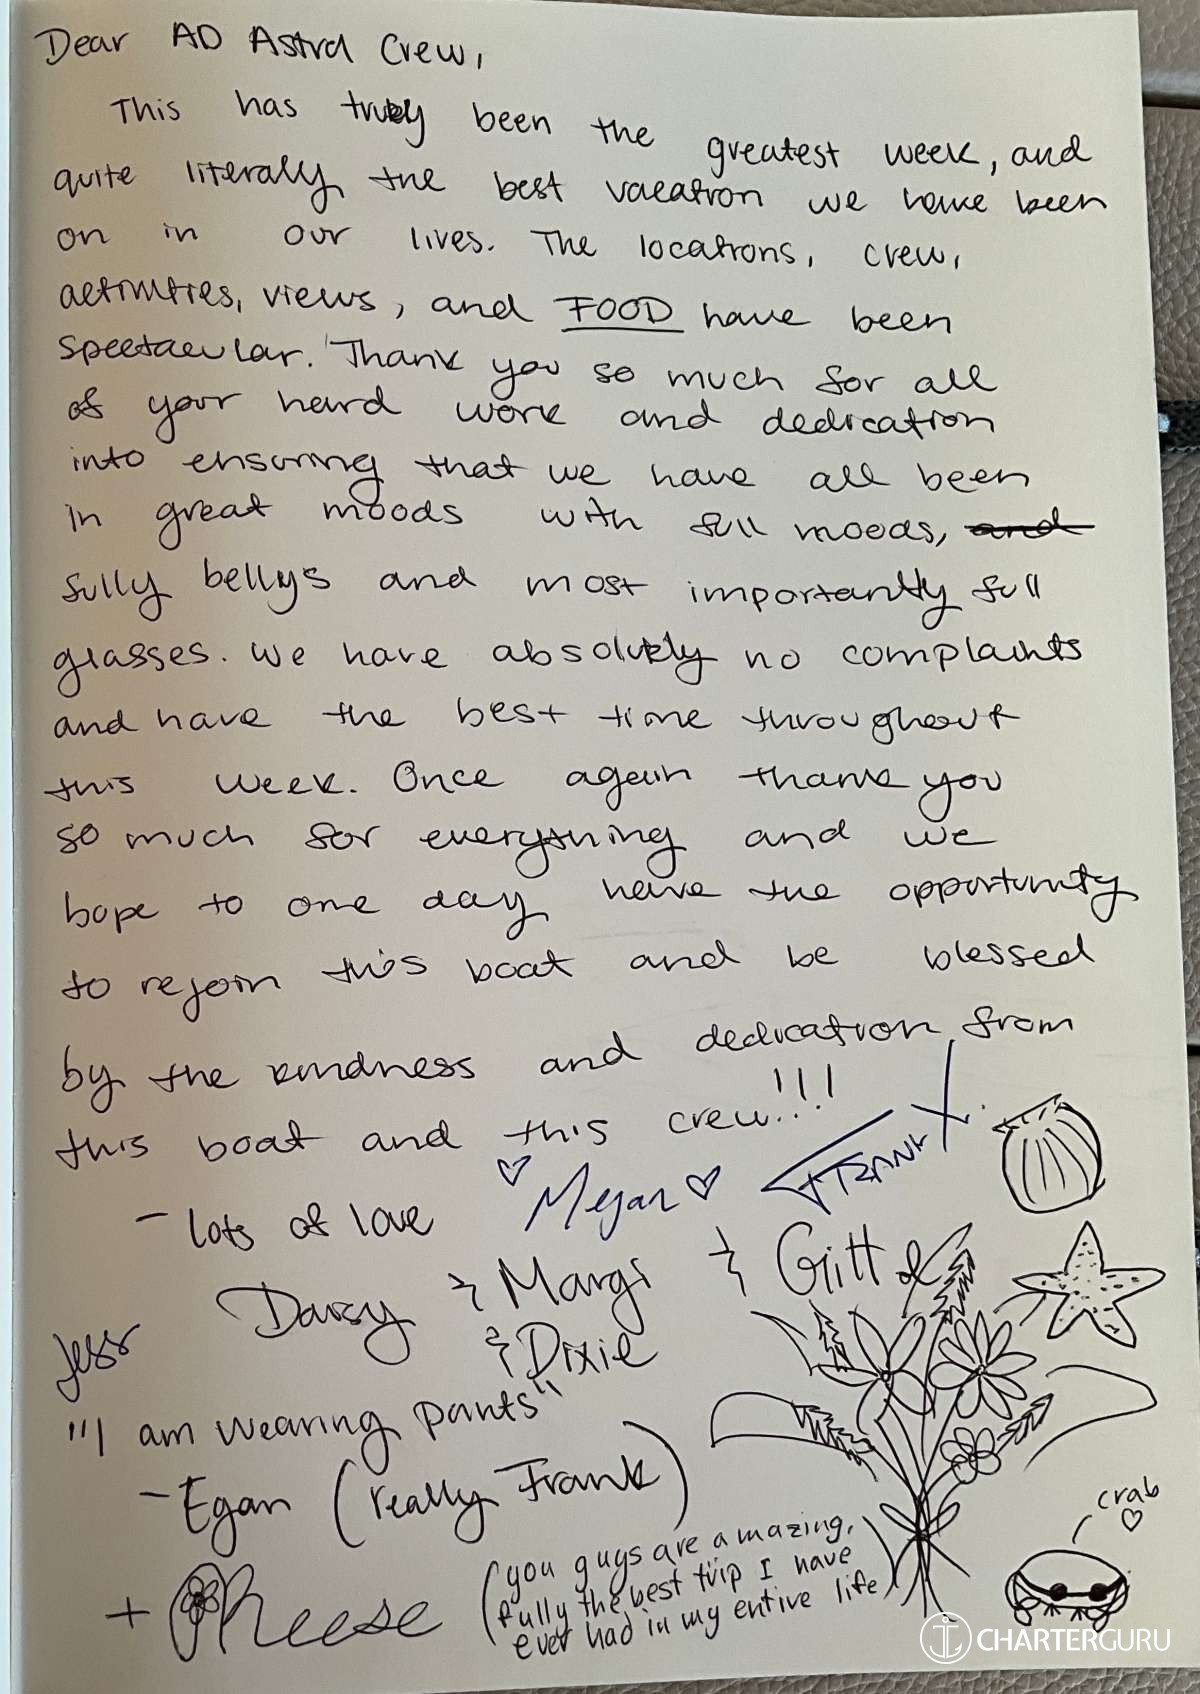 Dear AD Astra Crew,
This has truly been the greatest week, and
quite literally the best vacation we have been
on in our lives. The locations, crew,
activities, views, and FOOD have been
spectacular. Thank you so much for all
of your hard work and dedication
into ensuring that we have all been
in great moods with full moods, and
fully bellys and most importantly full
glasses. We have absolutely no complaints
and have the best time throughout
this week. Once again thank you
so much for everything and we
hope to one day have the opportunity
to rejoin this boat and be blessed
by the kindness and dedication from
this boat and this crew!!!
- lots of love
Megan
FRANK
Daisy & Margi &
Jess
& Dixie
"I am wearing pants"
- Egan (really Frank)
+ Rheese
(you guys are amazing,
fully the best trip I have
ever had in my entire life)
crab
CHARTERGURU